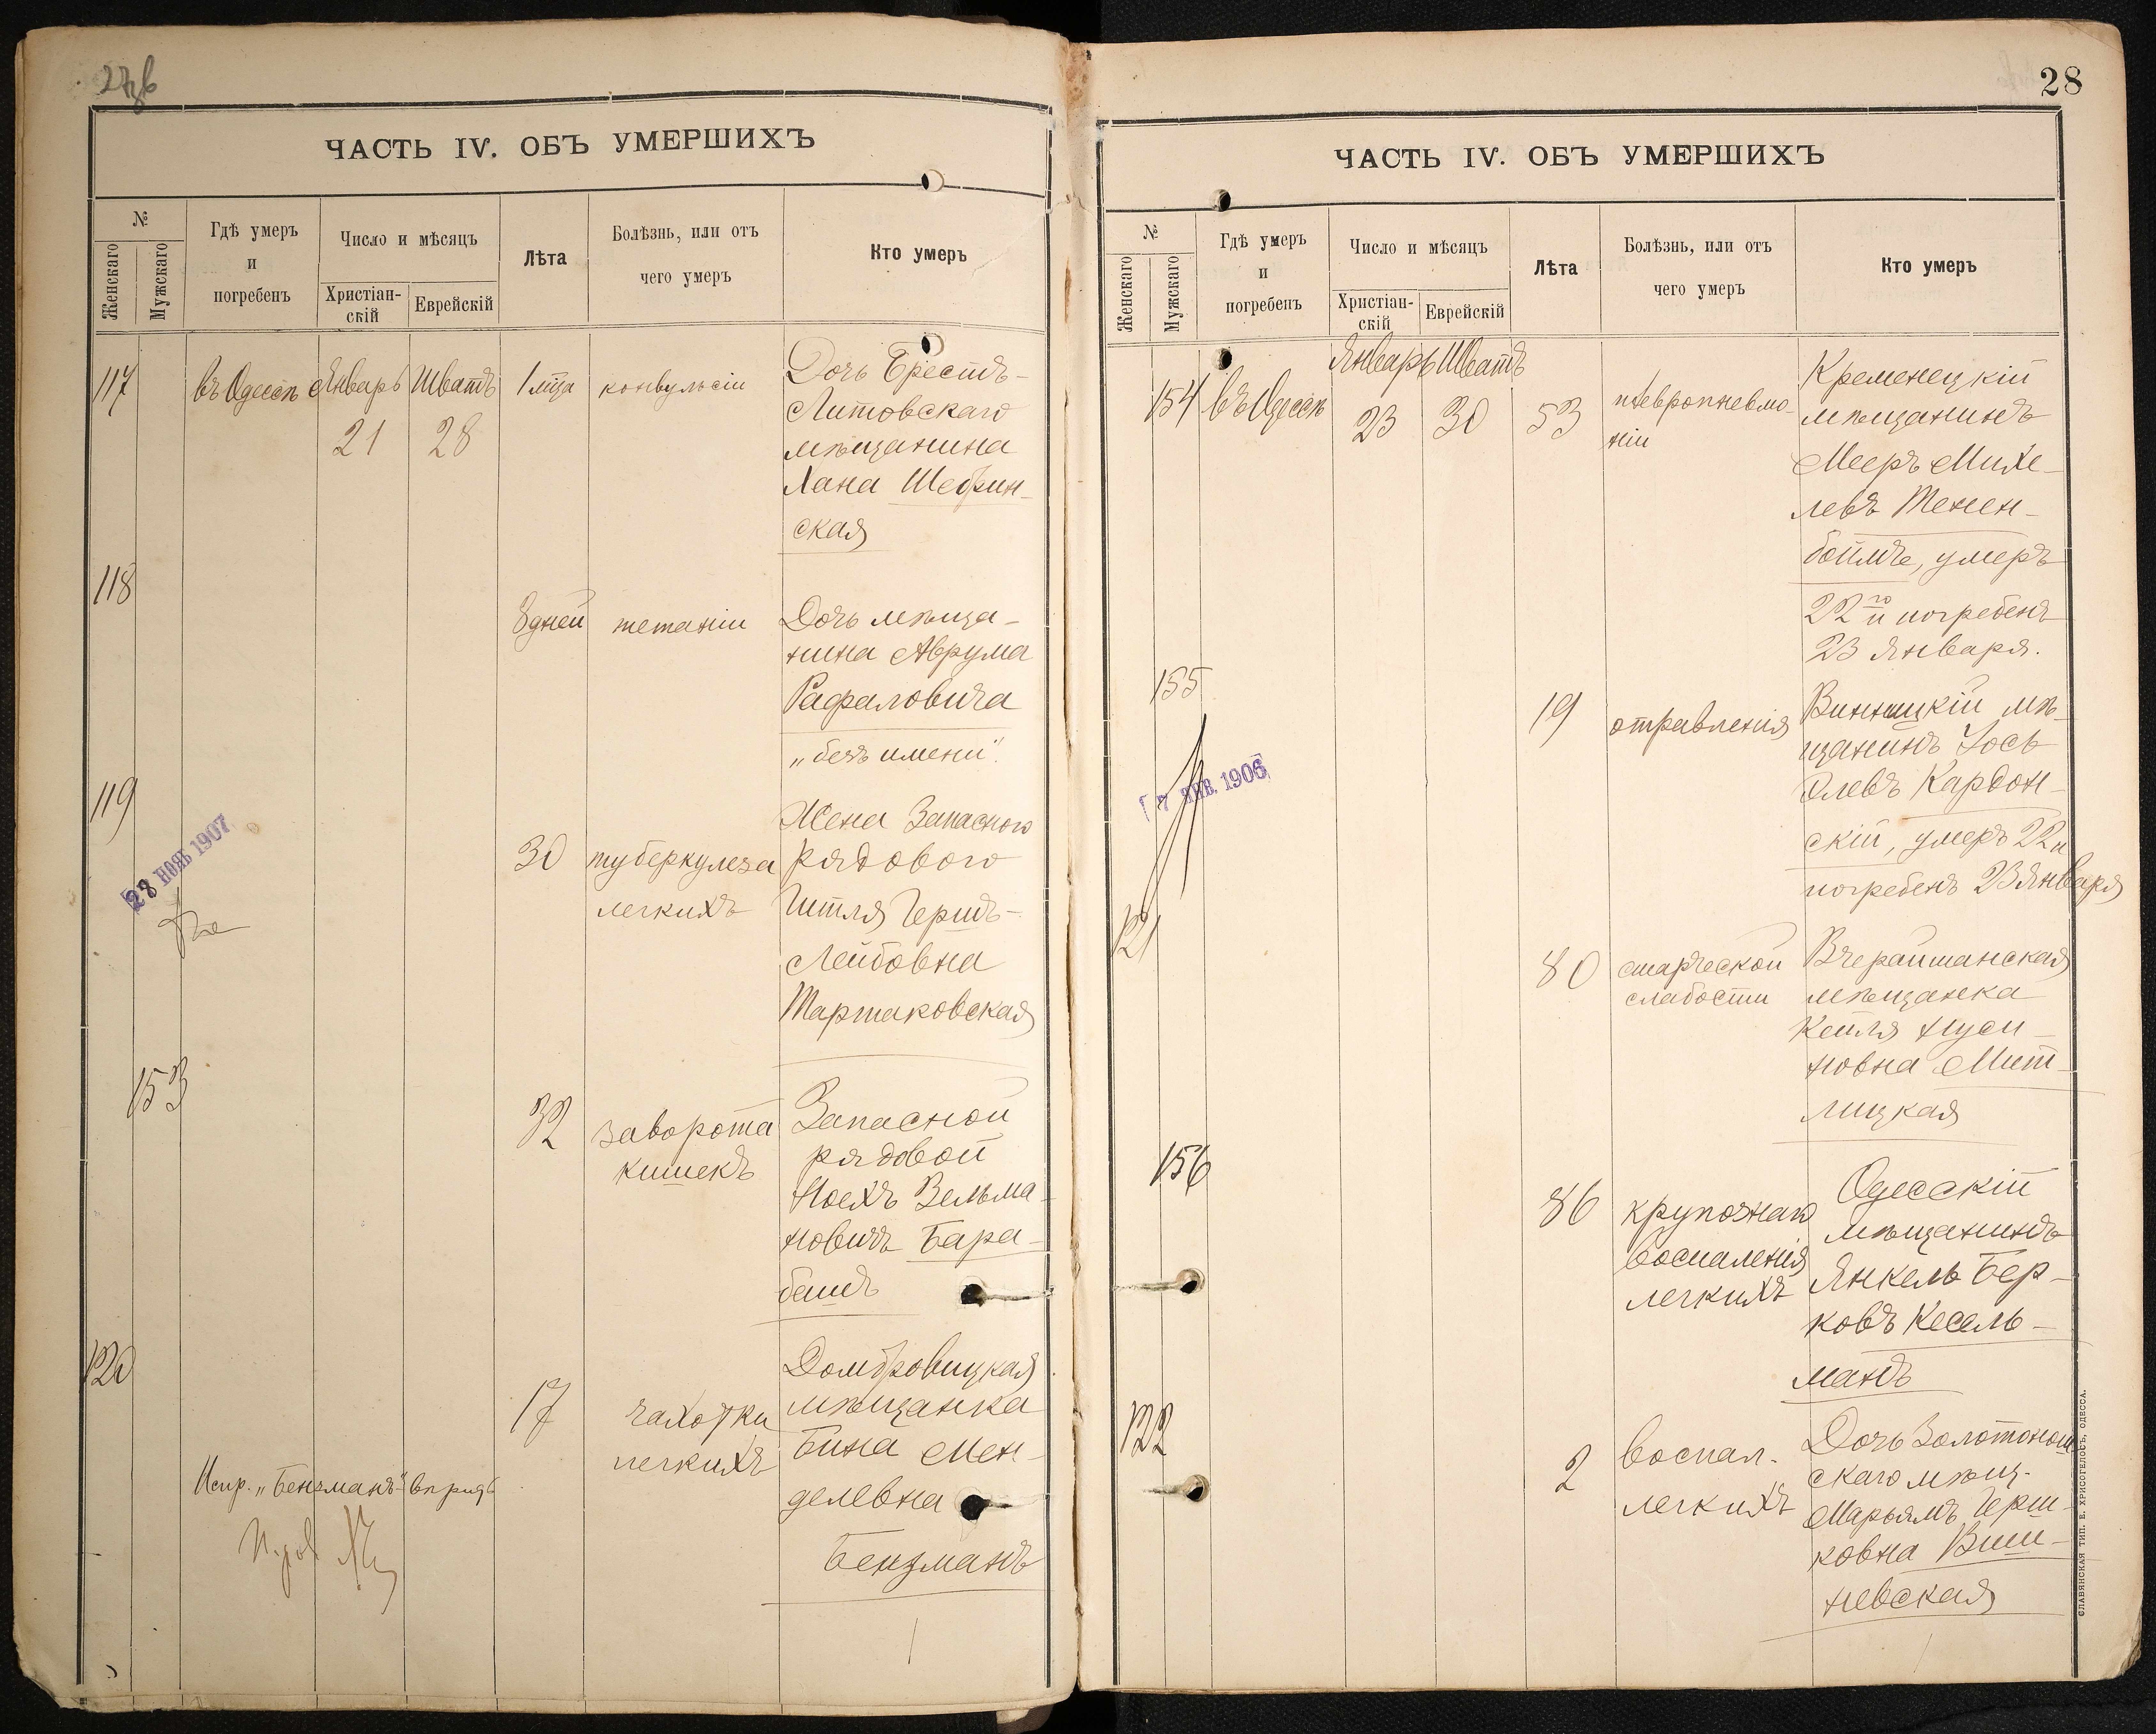 27об
ЧАСТЬ IV. ОБЪ УМЕРШИХЪ
№
Женскаго
Мужскаго
Гдѣ умеръ
и
погребенъ
Число и мѣсяцъ
Христіан-
скій
Еврейскій
Лѣта
Болѣзнь, или отъ
чего умеръ
Кто умеръ
117
въ Одессѣ
Январь
21
Шватъ
28
1 мѣ́ца
конвульсіи
Дочь Брестъ-
Литовскаго
мѣщанина
Хана Шебрин-
ская
118
8 дней
тетаніи
Дочь мѣща-
нина Аврума
Рафаловича
„безъ имени".
119
28 НОЯБ 1907
30
туберкулеза
легкихъ
Жена Запасного
рядового
Гитля Гершъ-
Лейбовна
Тартаковская
153
32
заворота
кишекъ
Запасной
рядовой
Ноехъ Зельма-
новичъ Бара-
башъ
120
17
чахотки
легкихъ
Домбровицкая
мѣщанка
Бина Мен-
делевна
Бензманъ
Испр. „Бензманъ"
28
ЧАСТЬ IV. ОБЪ УМЕРШИХЪ
№
Женскаго
Мужскаго
Гдѣ умеръ
и
погребенъ
Число и мѣсяцъ
Христіан-
скій
Еврейскій
Лѣта
Болѣзнь, или отъ
чего умеръ
Кто умеръ
154
въ Одессѣ
Январь
23
Шватъ
30
53
плевропневмо-
ніи
Кременецкій
мѣщанинъ
Мееръ Михе-
левъ Тенен-
боймъ, умеръ
22го и погребенъ
23 Января.
155
7 ЯНВ. 1906
19
отравленія
Винницкій мѣ-
щанинъ Іось
Элевъ Кардон-
скій, умеръ 22 и
погребенъ 23 Января
121
80
старческой
слабости
Вчерайшанская
мѣщанка
Кейля Нуси-
новна Мит-
лицкая
156
86
крупознаго
воспаленія
легкихъ
Одесскій
мѣщанинъ
Янкель Бер-
ковъ Кесель-
манъ
122
2
воспал.
легкихъ
Дочь Золотонош-
скаго мѣщ.
Марьямъ Герш-
ковна Виш-
невская
СЛАВЯНСКАЯ ТИП. Е. ХРИСОГЕЛОСЪ, ОДЕССА.